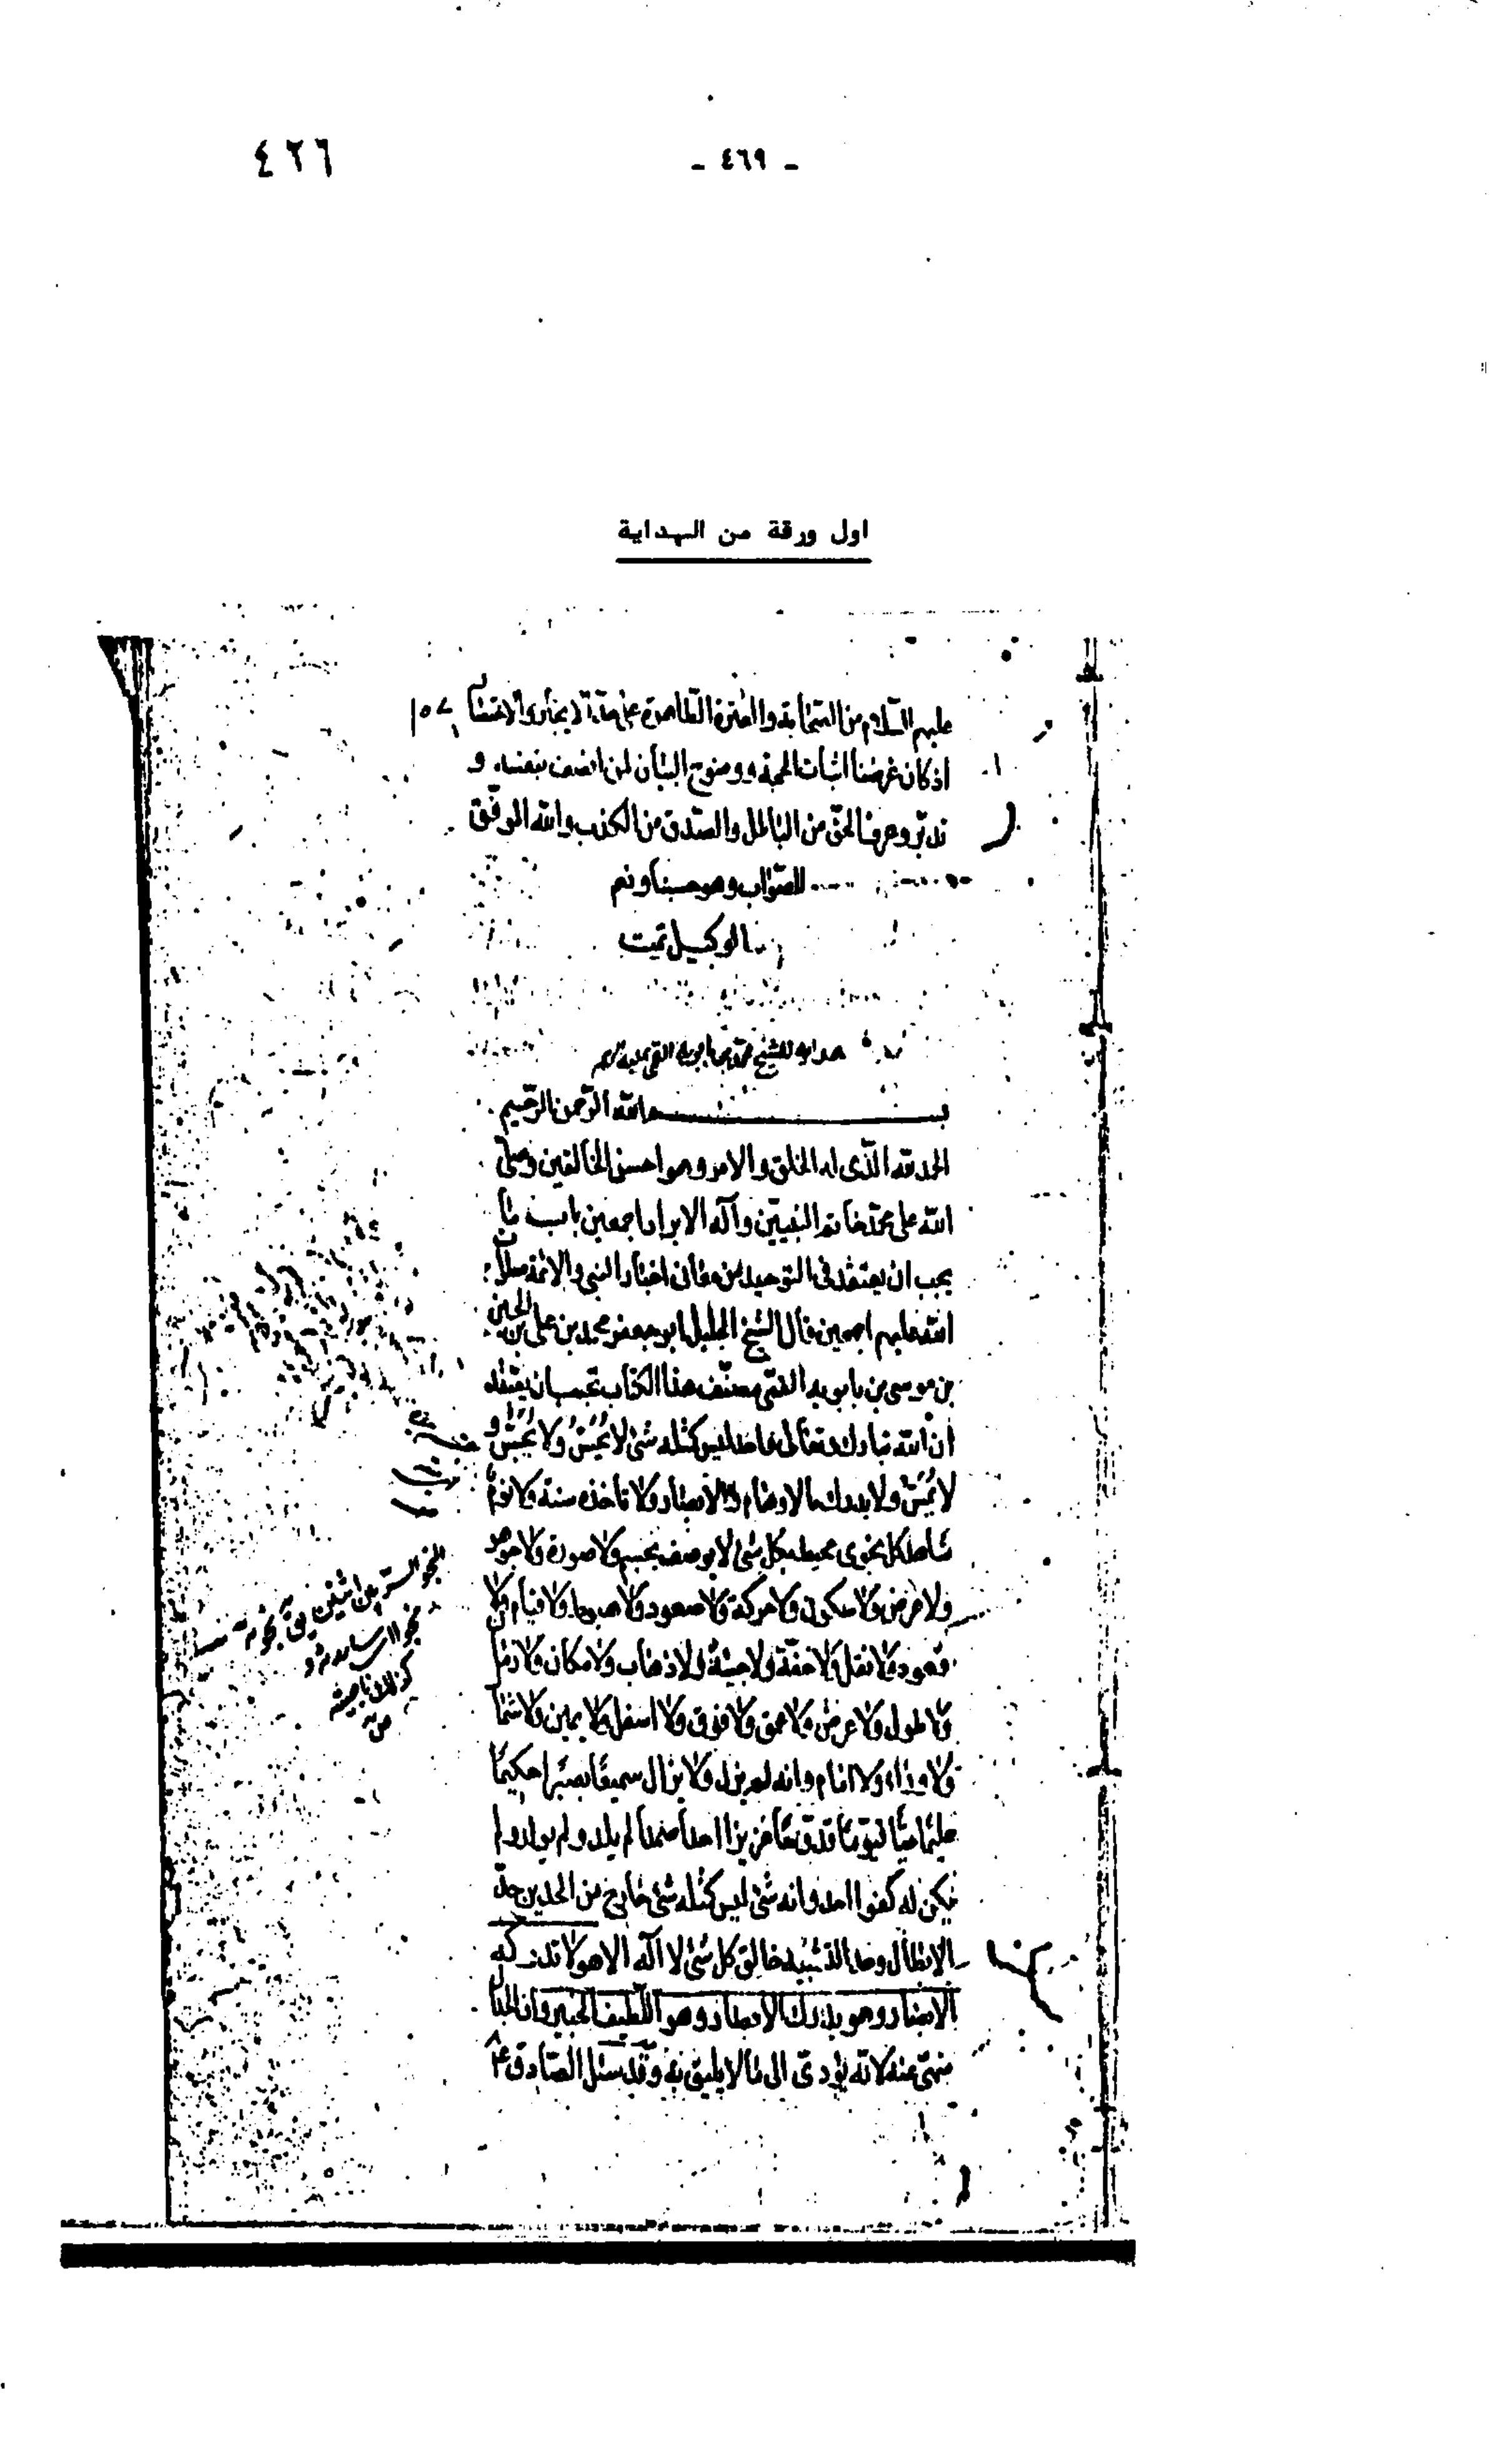 ٤٢٦
- ٤٦٩ -
اول ورقة من الهداية
عليهم السلام من الصحابة والعترة الطاهرة على جهة الايجاز والاختصار
اذ كان غرضنا اثبات الحجة ووضوح البيان لمن انصف نفسه و
تدبر وعرف الحق من الباطل والصدق من الكذب والله الموفق
للصواب وهو حسبنا ونعم
الوكيل تمت
هدايه للشيخ محمد بن بابويه القمى عليه الرحمه
بسم الله الرحمن الرحيم
الحمد لله الذى له الخلق والامر وهو احسن الخالقين وصلى
الله على محمد خاتم النبيين وآله الابرار اجمعين باب ما
يجب ان يعتقد فى التوحيد من معانى اخبار النبى والائمة صلوات
الله عليهم اجمعين قال الشيخ الجليل ابو جعفر محمد بن على بن الحسين
بن موسى بن بابويه القمى مصنف هذا الكتاب يجب ان يعتقد
ان الله تبارك وتعالى واحد ليس كمثله شئ لا يحس ولا يجس و
لا يمس ولا يدرك بالاوهام والابصار ولا تاخذه سنة ولا نوم
شاهد كل نجوى محيط بكل شئ لا يوصف بجسم ولا صورة ولا جوهر
ولا عرض ولا سكون ولا حركة ولا صعود ولا هبوط ولا قيام ولا
قعود ولا ثقل ولا خفة ولا جيئة ولا ذهاب ولا مكان ولا زمان
ولا طول ولا عرض ولا عمق ولا فوق ولا اسفل ولا يمين ولا شمال
ولا وراء ولا امام وانه لم يزل ولا يزال سميعا بصيرا حكيما
عليما حيا قيوما قدوسا عزيزا احدا صمدا لم يلد ولم يولد ولم
يكن له كفوا احد وانه شئ ليس كمثله شئ خارج من الحدين حد
الابطال وحد التشبيه خالق كل شئ لا اله الا هو لا تدركه
الابصار وهو يدرك الابصار وهو اللطيف الخبير وان الجدال
منهى عنه لانه يؤدى الى ما لا يليق به وقد سئل الصادق ع
النجو السر بين اثنين يق نجوته